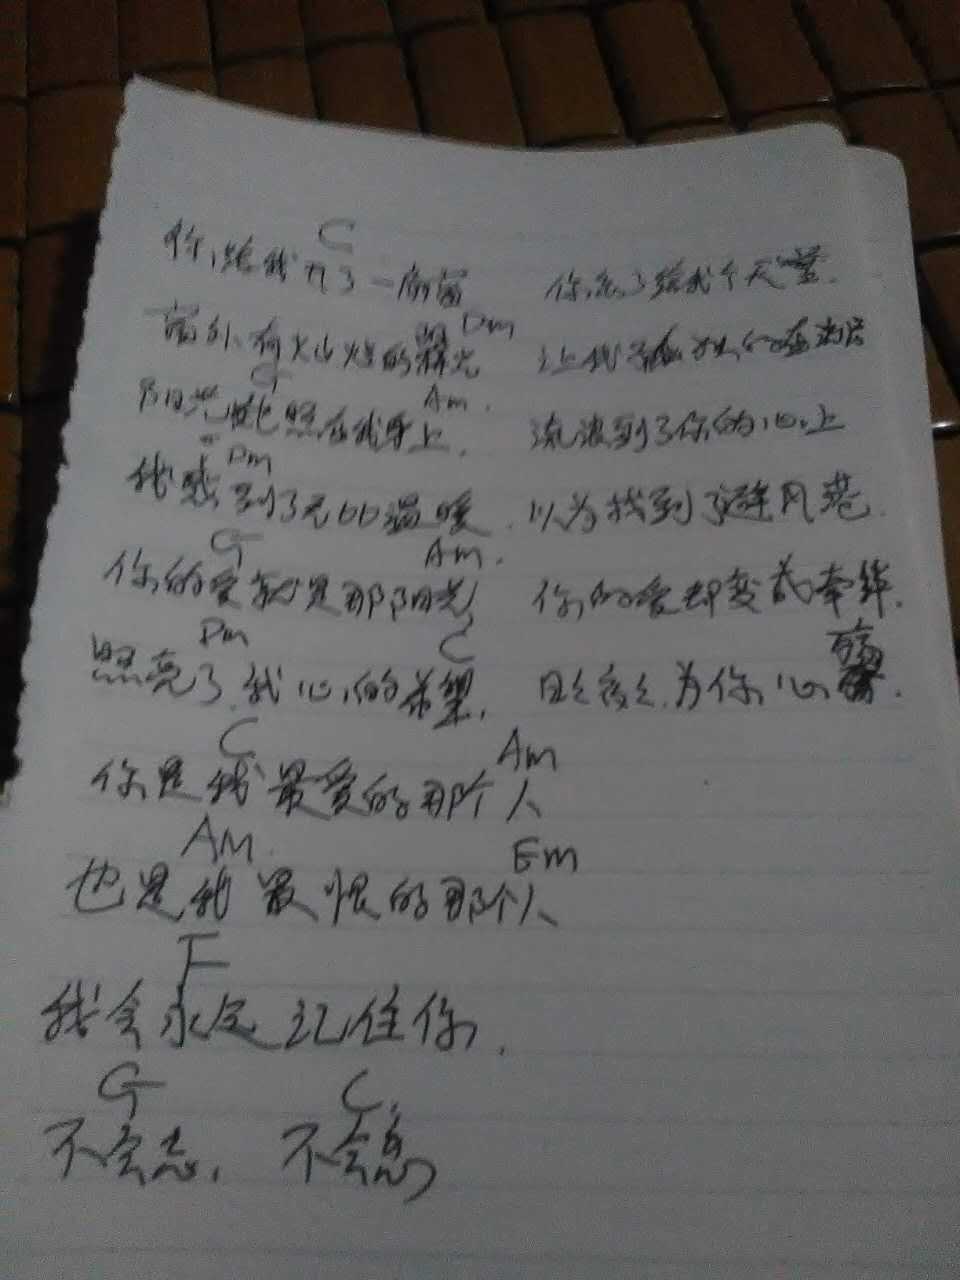 C
你,给我开了一扇窗 你忘了给我个天堂.
Dm
窗外,有火山的 光 让我
G Am.
阳光 照在我身上. 流浪到了你的心上
Dm
我感到了无比温暖. 以为找到了避风港.
G Am.
你的爱就是那阳光 你的爱却变成牵绊.
Dm C
照亮了.我心的希望. 久久为你心
C Am
你是我最爱的那个人
Am. Em
也是我最恨的那个人
F
我会永远记住你.
G C
不会忘, 不会忘